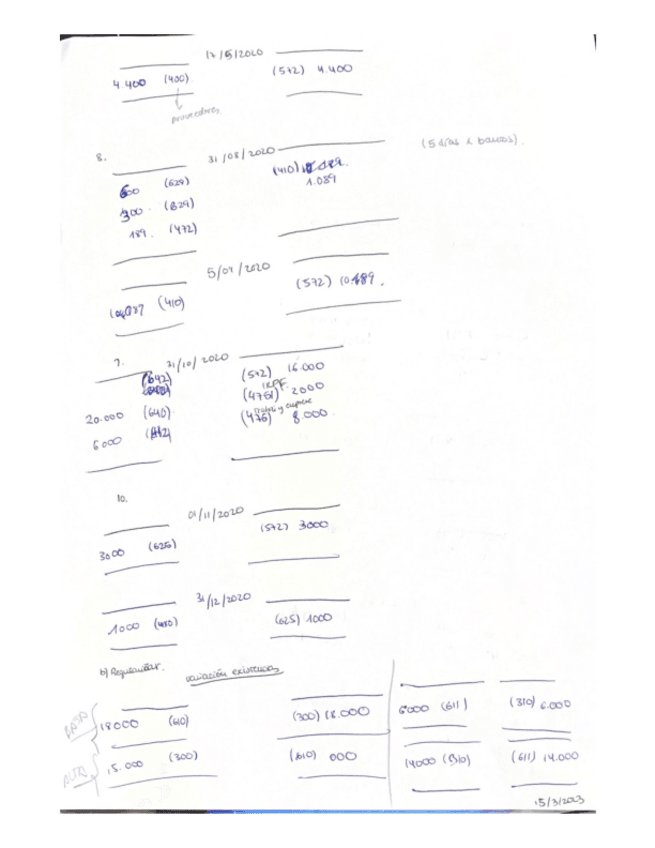 17/5/2020
4.400 (400) (572) 4.400
proveedores
8. 31/08/2020 (5 días a bancos).
600 (629) (410)
300 (629) 1.089
189. (472)
5/09/2020
(410) (572)
31/10/2020
(642) (572) 16.000
IRPF
20.000 (640) (4751) 2000
6000 (476) 8000.
10.
01/11/2020
3000 (625) (572) 3000
31/12/2020
1000 (480) (625) 1000
b) Regularizar. variación existencias
BAJA 18000 (610) (300) 18.000 6000 (611) (310) 6.000
ALTA 15.000 (300) (610) 000 14000 (310) (611) 14.000
15/3/2023